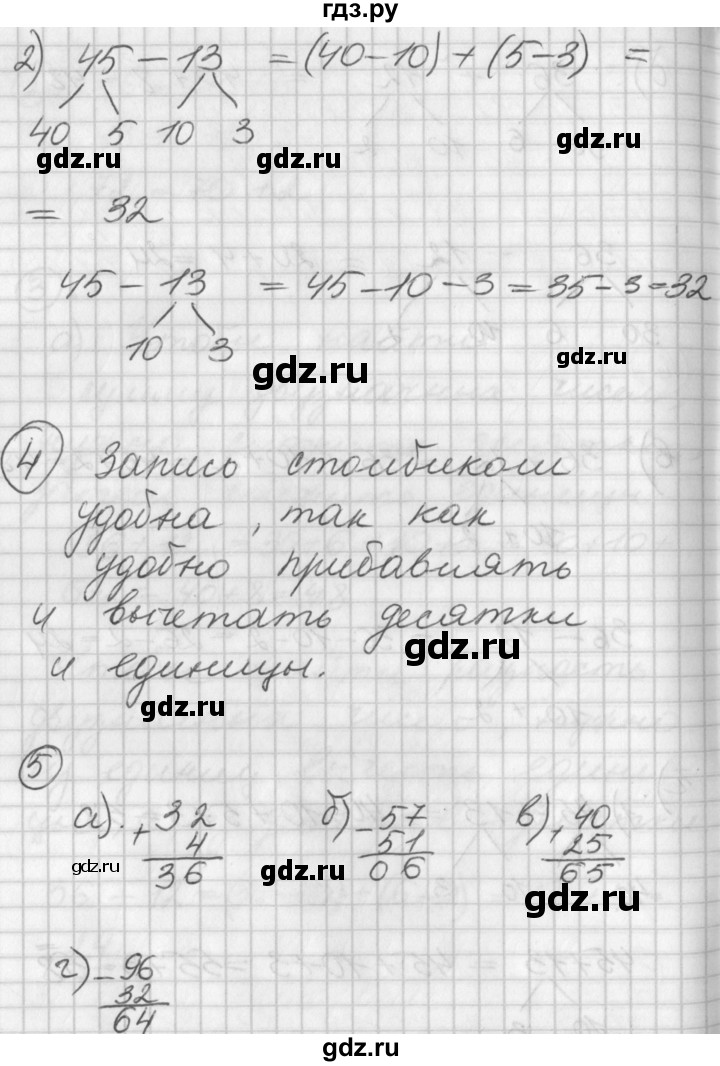 гдз.ру
2) 45 - 13 = (40-10) + (5-3) =
40 5 10 3
gdz.ru gdz.ru gdz.ru
= 32
45 - 13 = 45-10-3 = 35-3=32
10 3
gdz.ru gdz.ru
4 Запись столбиком
удобна, так как
удобно прибавлять
и вычетать десятки
gdz.ru
и единицы.
gdz.ru
5
а). + 32 б) - 57 в) + 40
4 51 25
36 06 65
gdz.ru gdz.ru gdz.ru
г) - 96
32
64
gdz.ru